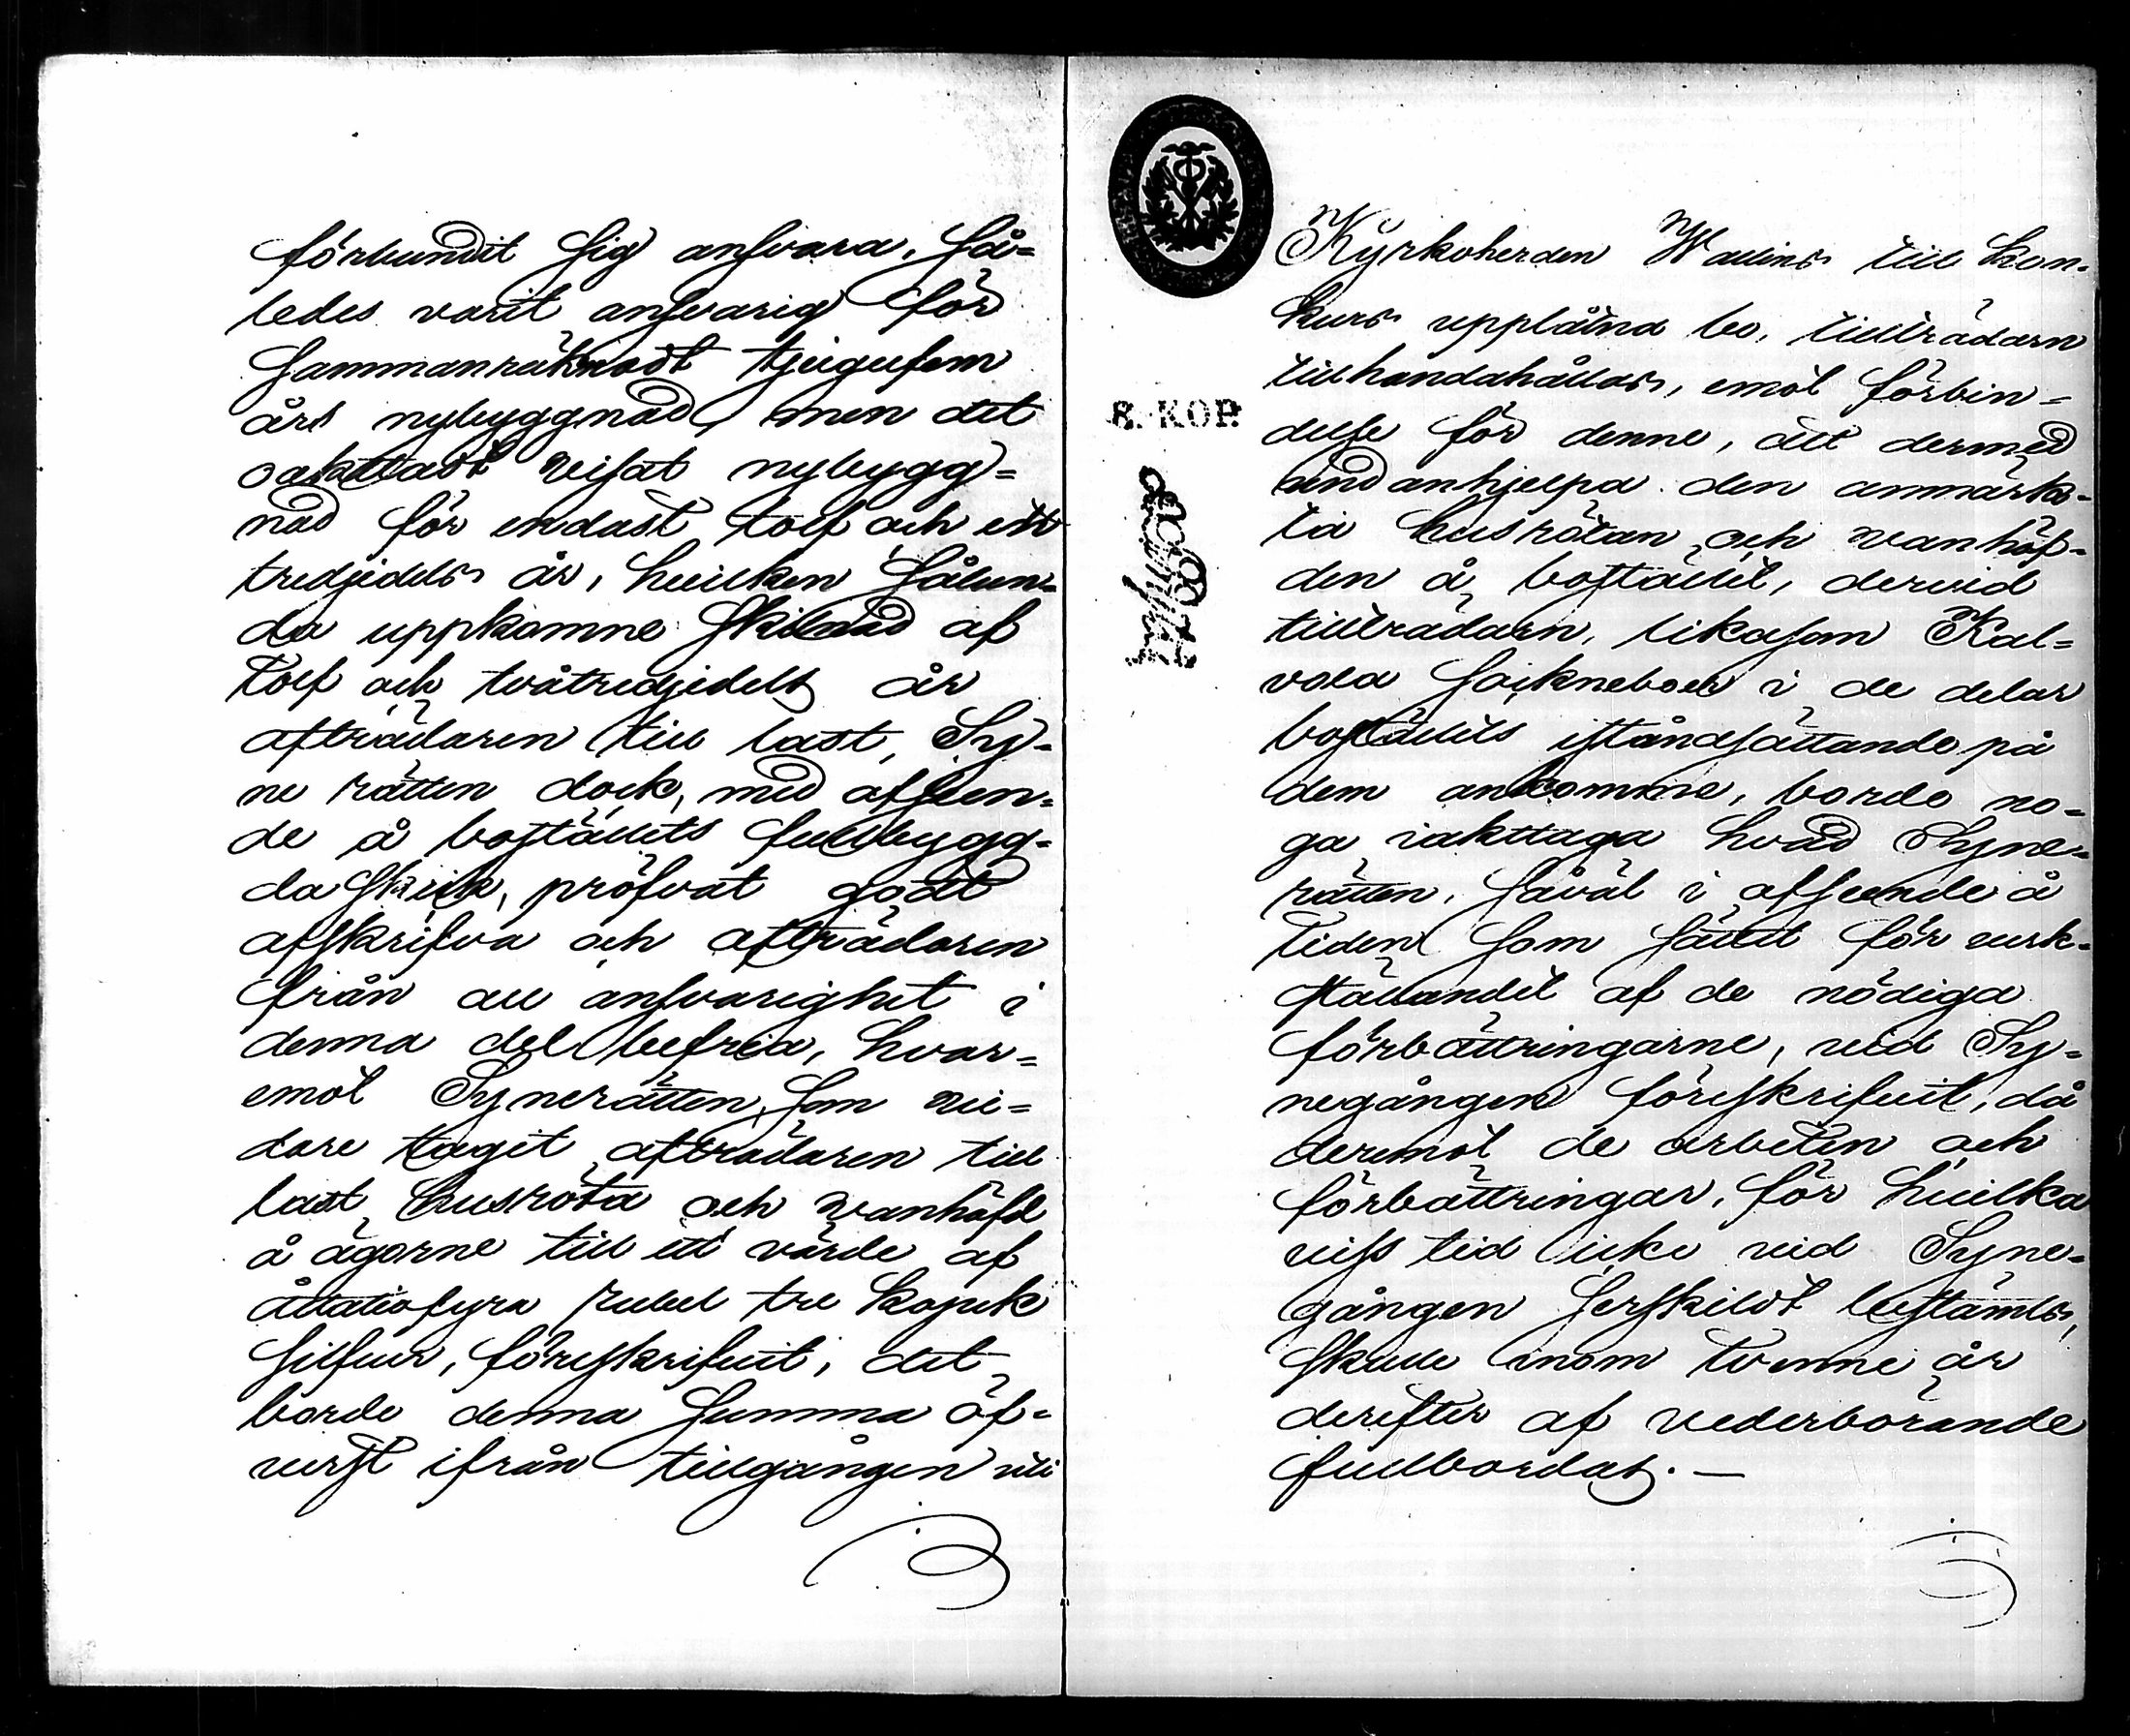 förbundit sig ansvara, så-
ledes varit ansvarig för
sammanräknadt tjugufem
års nybyggnad, men det
oaktadt visat nybygg-
nad för endast tolf och ett
tredjedels år, hvilken sålun-
da uppkomne skilnad af
tolf och tvåtredjedels år
afträdaren till last, Sy-
ne rätten dock, med afseen-
de å boställets fullbygg-
da skick, pröfvat godt
afskrifva och afträdaren
från all ansvarighet i
denna del befria, hvar-
emot Synerätten, som vi-
dare tagit afträdaren till
last husröta och vanhäfd
å ägorne till ett värde af
åttatiofyra rubel tre kopek
silfver, föreskrifvit, det
borde denna summa öf-
verst ifrån tillgången uti
Kyrkoherden Wallins till kon-
kurs upplåtna bo, tillträdaren
tillhandahållas, emot förbin-
delse för denne, att dermed
anhjelpa den anmärk-
ta husrötan och vanhäf-
den å bostället, dervid
tillträdaren, likasom Kal-
vola Socknebor i de delar
boställets iståndsättande på
dem ankomme, borde no-
ga iakttaga hvad Syne-
rätten, såväl i afseende å
tiden som sättet för verk-
ställandet af de nödiga
förbättringarne, vid Sy-
negången föreskrifvit, då
deremot de arbeten och
förbättringar, för hvilka
viss tid icke vid Syne-
gången serskildt bestämts,
skulle inom tvenne år
derefter af vederbörande
fullbordas. —
8. KOP.